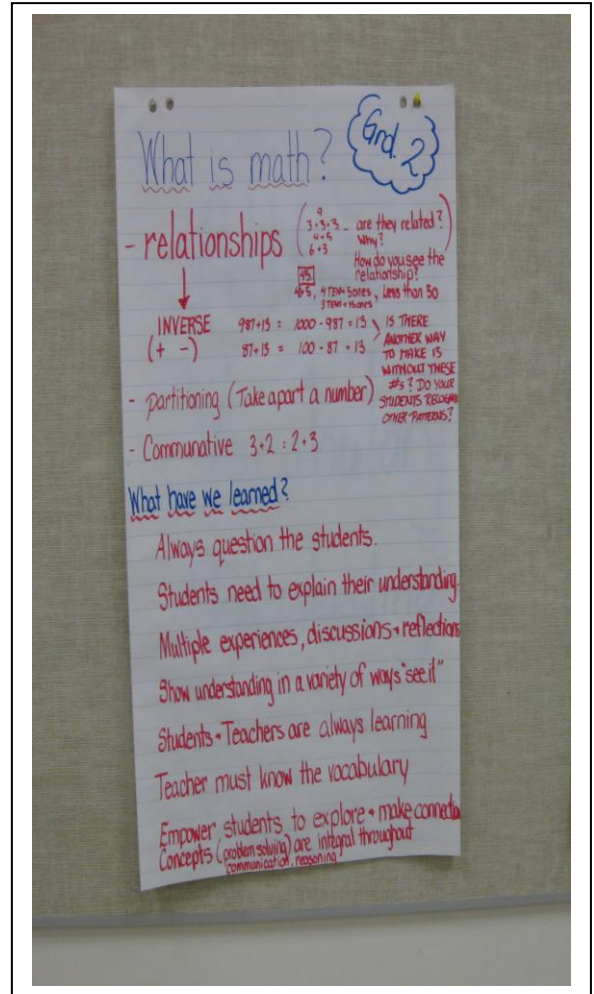 What is math?
Grd. 2
- relationships
9
3+3+3 - are they related?
4+5 Why?
6+3 How do you see the
relationship?
45
4 TENS + 5 ones, less than 50
3 TENS + 15 ones
INVERSE
(+ -)
987+13 = 1000-987 = 13
87+13 = 100-87 = 13
IS THERE
ANOTHER WAY
TO MAKE 13
WITHOUT THESE
#s? DO YOUR
STUDENTS
OTHER PATTERNS?
- partitioning (Take apart a number)
- Communative 3+2 = 2+3
What have we learned?
Always question the students.
Students need to explain their understanding
Multiple experiences, discussions + reflections
Show understanding in a variety of ways "see it"
Students + Teachers are always learning
Teacher must know the vocabulary
Empower students to explore + make connection
Concepts (problem solving) are integral throughout
communication, reasoning